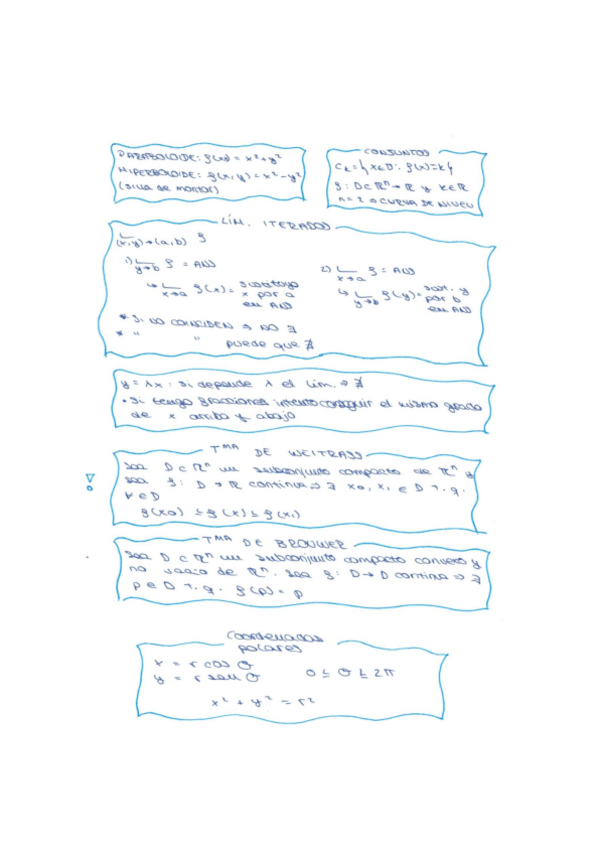 PARABOLOIDE: f(x) = x² + y²
HIPERBOLOIDE: f(x,y) = x² - y²
(silla de montar)
CONJUNTOS
Ck = { x ∈ D : f(x) = k }
f : D ⊂ ℝⁿ → ℝ y k ∈ ℝ
n = 2 → CURVA DE NIVEL
LÍM. ITERADOS
L (x,y)→(a,b) f
1) L y→b f = AND
↳ L x→a f(x) = sustituyo x por a en AND
2) L x→a f = AND
↳ L y→b f(y) = sust. y por b en AND
* Si NO COINCIDEN ⇒ NO ∃
* " " puede que ∄
y = λx : si depende λ el lím. ⇒ ∄
• Si tengo fracciones intento conseguir el mismo grado
de x arriba y abajo
TMA DE WEITRASS
Sea D ⊂ ℝⁿ un subconjunto compacto de ℝⁿ y
sea f : D → ℝ continua ⇒ ∃ x0, x1 ∈ D t.q.
∀ ∈ D
f(x0) ≤ f(x) ≤ f(x1)
TMA DE BROUWER
Sea D ⊂ ℝⁿ un subconjunto compacto convexo y
no vacío de ℝⁿ. Sea f : D → D continua ⇒ ∃
p ∈ D t.q. f(p) = p
Coordenadas
polares
x = r cos θ
y = r sen θ 0 ≤ θ ≤ 2π
x² + y² = r²